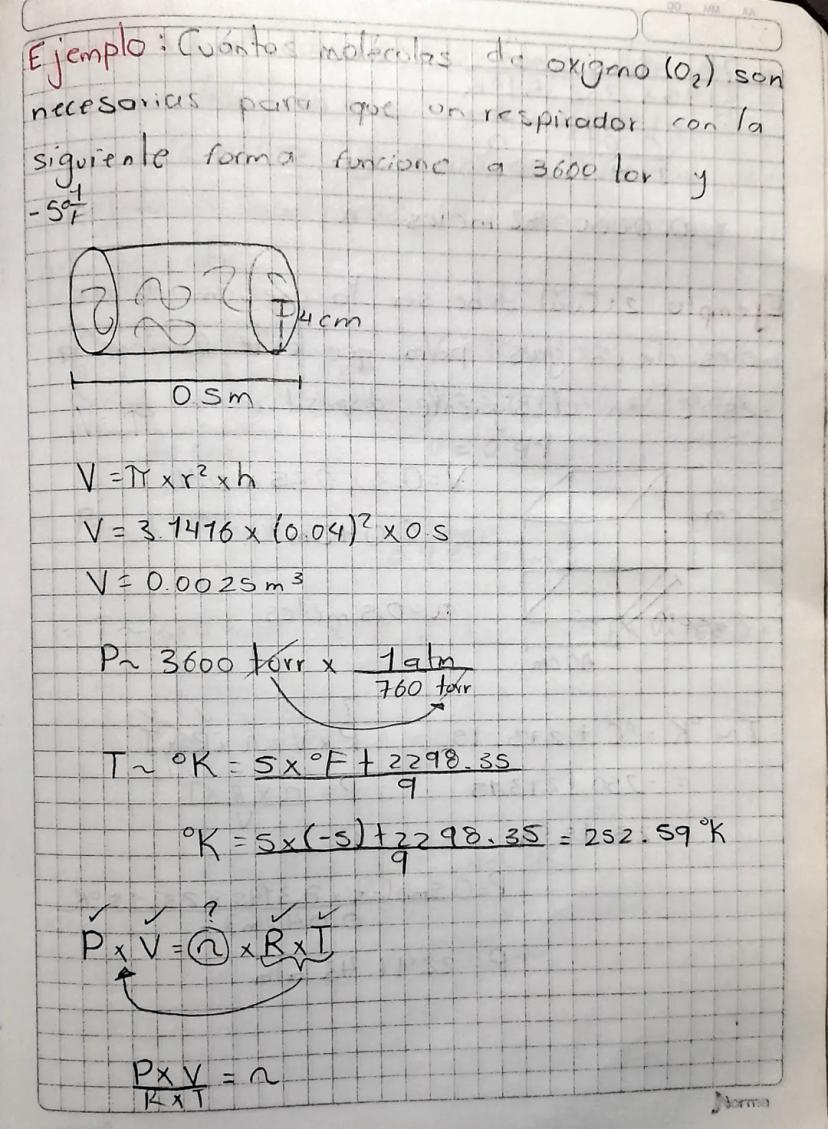 DD MM AA
Ejemplo: Cuántas moléculas de oxigeno (O₂) son
necesarias para que un respirador con la
siguiente forma funcione a 3600 tor y
-5°F
4cm
0.5m
V = π x r² x h
V = 3.1416 x (0.04)² x 0.5
V = 0.0025m³
P~ 3600 torr x 1 atm / 760 torr
T~ °K = 5 x °F + 2298.35 / 9
°K = 5x(-5)+2298.35 / 9 = 252.59 °K
?
P x V = n x R x T
P x V / R x T = n
Norma